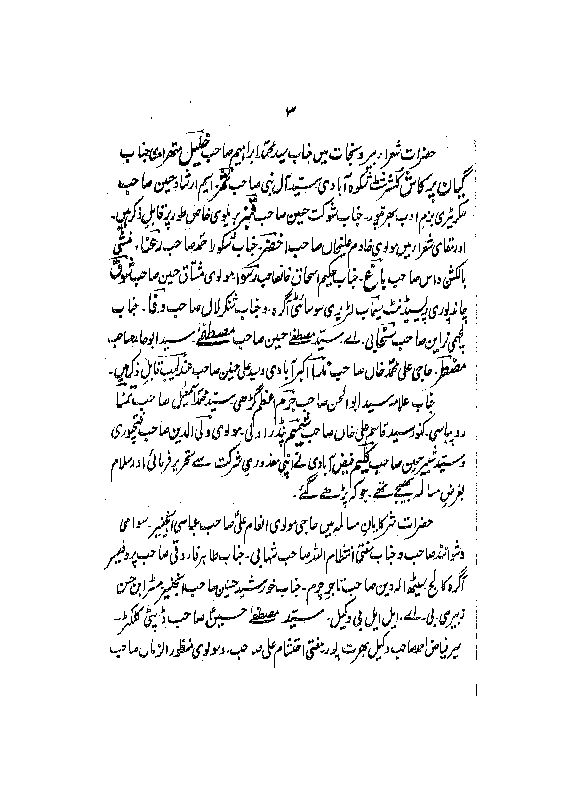 ۳
حضرات شعراء بیرونجات میں جناب سید محمد ابراہیم صاحب خلیل متھراوی جناب
گیان پرکاش شکوہ آبادی سید آل نبی صاحب ایم ارشاد حسین صاحب
سکریٹری بزم ادب بھرتپور۔ جناب شوکت حسین صاحب بریلوی خاص طور پر قابل ذکر ہیں۔
اور مقامی شعراء میں مولوی خادم علیخاں صاحب اخضر۔ جناب ٹھکور صاحب رعنا، منشی
بالکشن داس صاحب باغ۔ جناب حکیم اسحاق خانصاحب رسوا مولوی مشتاق حسین صاحب شوق
چاندپوری پریسیڈنٹ پنجاب لٹریری سوسائٹی آگرہ۔ و جناب شنکر لال صاحب وفا۔ جناب
لچھمی نراین صاحب سخا بی۔ اے۔ سید مصطفےٰ حسین صاحب مصطفےٰ سید ابو حامد صاحب
مضطر۔ حاجی علی محمد خاں صاحب اکبرآبادی و سید علی حسنین صاحب عندلیب قابل ذکر ہیں۔
جناب علامہ سید ابوالحسن صاحب اعظم گڑھی سید محمد اسمٰعیل صاحب تمنا
ردیہاسی۔ کنور سید قاسم علی خاں صاحب شمیم پنڈراولی۔ مولوی ذکی الدین صاحب فتحپوری
و سید شبیر حسین صاحب کلیم فیض آبادی نے اپنی معذوری شرکت سے تحریر فرمائی اور سلام
بغرض مسالمہ بھیجے تھے۔ جو کہ پڑھے گئے۔
حضرات شرکا بان مسالمہ میں حاجی مولوی انعام علی صاحب عباسی انجینیر۔ سوامی
صاحب و جناب مفتی انتظام اللہ صاحب شہابی۔ جناب طاہر فاروقی صاحب پروفیسر
آگرہ کالج سیٹھ الہ دین صاحب تاجر چرم۔ جناب خورشید حسنین صاحب انجینیر مسٹر ابن حسن
زبیری بی۔ اے، ایل ایل بی وکیل۔ سید مصطفےٰ حسین صاحب ڈپٹی کلکٹر
میر نیاض احمد صاحب وکیل بھرت پور مفتی احتشام علی صاحب، و مولوی منظور الزماں صاحب